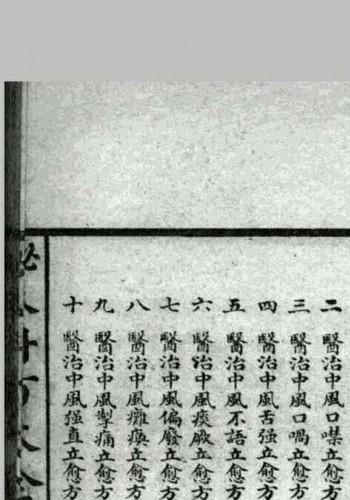 二 醫治中風口噤立愈方
三 醫治中風口喎立愈方
四 醫治中風舌强立愈方
五 醫治中風不語立愈方
六 醫治中風痰厥立愈方
七 醫治中風偏廢立愈方
八 醫治中風癱瘓立愈方
九 醫治中風掣痛立愈方
十 醫治中風强直立愈方